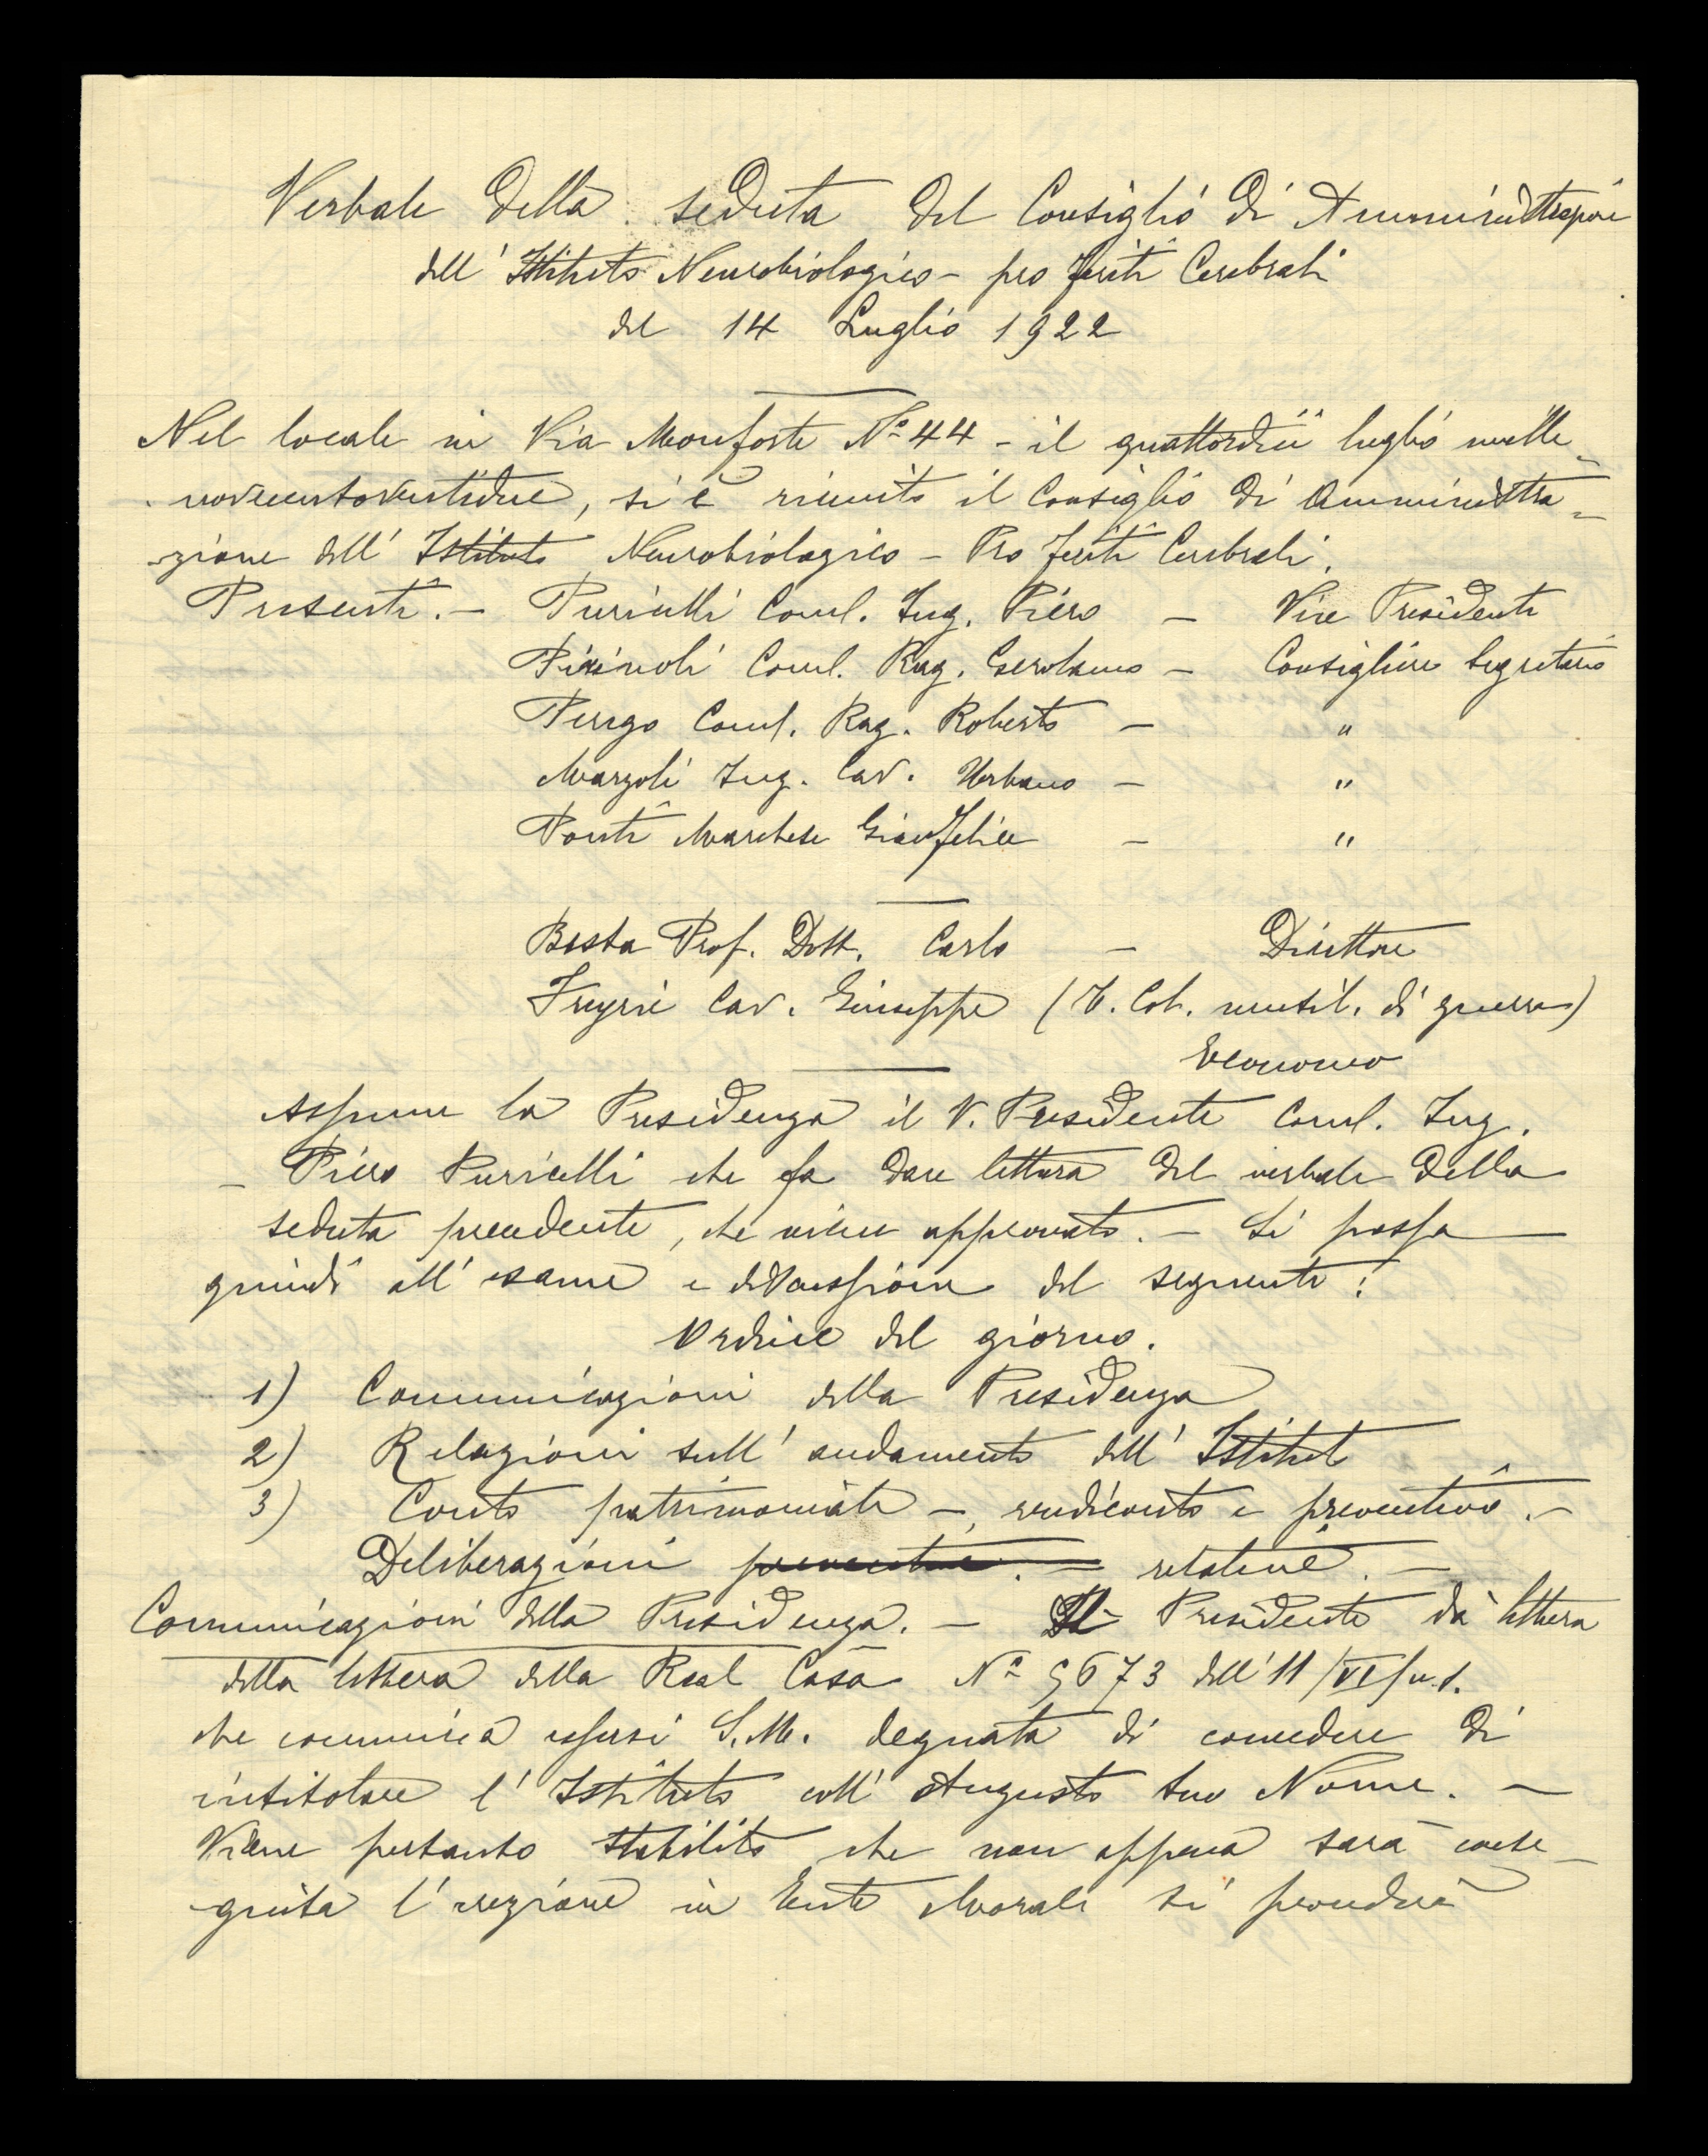 Verbale della seduta del Consiglio di Amministrazione
dell' Istituto Neurobiologico - pro feriti Cerebrali
del 14 Luglio 1922
Nel locale in Via Monforte No 44 - il quattordici luglio mille-
novecentoventidue, si è riunito il Consiglio di Amministra-
zione dell' Istituto Neurobiologico - Pro feriti Cerebrali.
Presenti. - Puricelli Comm. Ing. Piero - Vice Presidente
Comm. Rag. Gerolamo - Consigliere Segretario
Perego Comm. Rag. Roberto - "
Marzoli Ing. Cav. Urbano - "
Ponti Marchese GianFelice - "
Besta Prof. Dott. Carlo - Direttore
Cav. Giuseppe (T. Col. mutil. di guerra)
Economo
Assume la Presidenza il V. Presidente Comm. Ing.
- Piero Puricelli che fa dare lettura del verbale della
seduta precedente, che viene approvato. - Si passa
quindi all' esame e discussione del seguente:
Ordine del giorno.
1) Comunicazioni della Presidenza
2) Relazioni sull' andamento dell' Istituto
3) Conto patrimoniale -, rendiconto e preventivo. -
Deliberazioni preventive. - relative. -
Comunicazioni della Presidenza. - Il Presidente dà lettura
della lettera della Real Casa No 5673 dell' 11/VI/u.s.
che comunica essersi S.M. degnata di concedere di
intitolare l' Istituto coll' Augusto Suo Nome. -
Viene pertanto stabilito che non appena sarà conse-
guita l' erezione in Ente Morale si provvederà